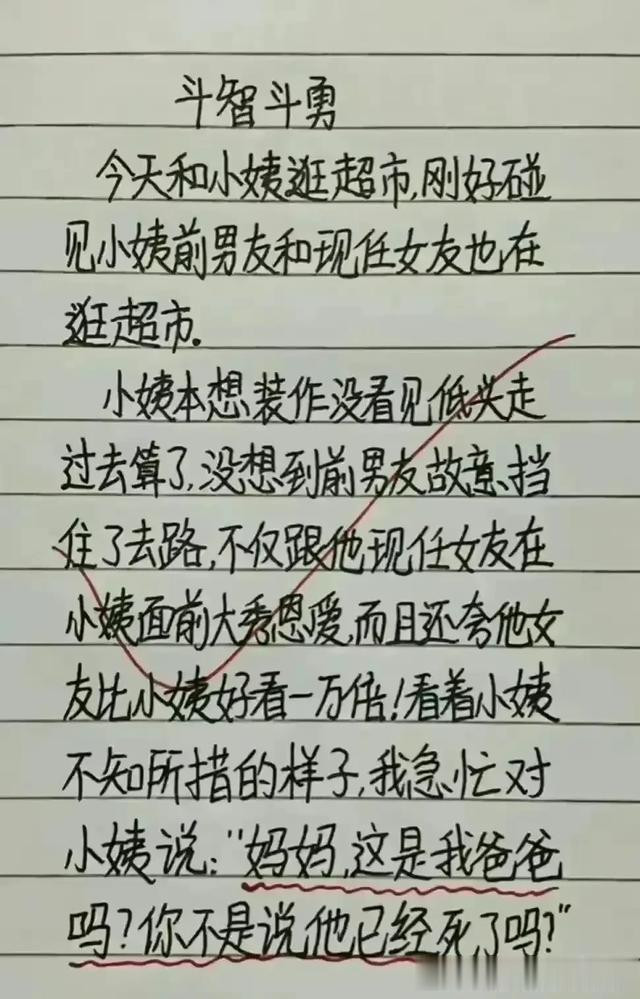 斗智斗勇
今天和小姨逛超市,刚好碰
见小姨前男友和现任女友也在
逛超市.
小姨本想装作没看见低头走
过去算了,没想到前男友故意挡
住了去路,不仅跟他现任女友在
小姨面前大秀恩爱,而且还夸他女
友比小姨好看一万倍!看着小姨
不知所措的样子,我急忙对
小姨说:"妈妈,这是我爸爸
吗?你不是说他已经死了吗?"